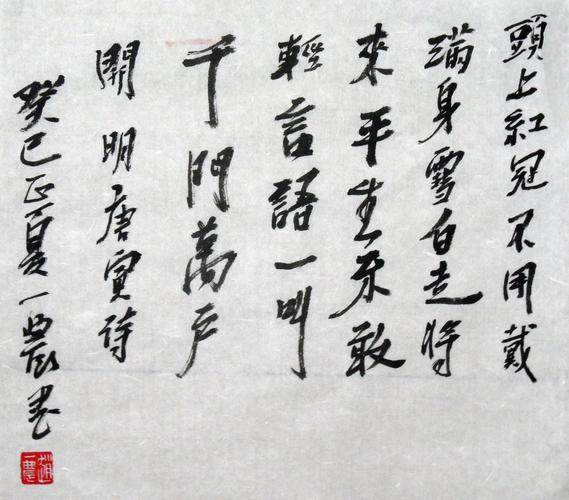 頭上紅冠不用戴
滿身雪白走將
來平生不敢
輕言語一叫
千門萬戶
開明唐寅詩
癸巳正夏一農書